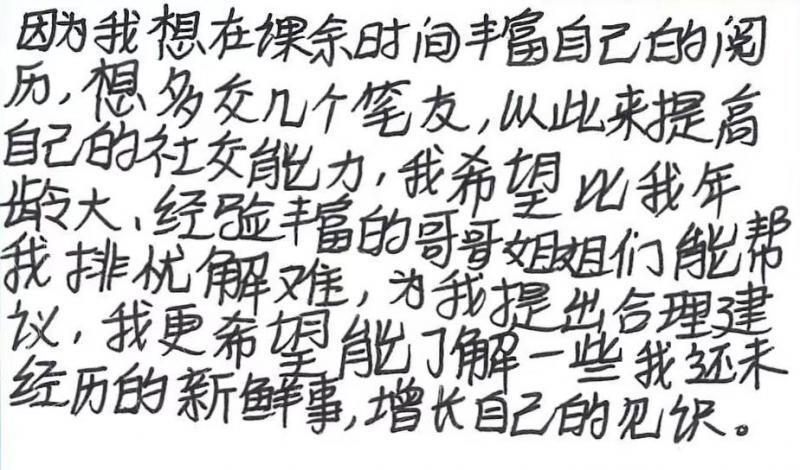 因为我想在课余时间丰富自己的阅
历,想多交几个笔友,从此来提高
自己的社交能力,我希望比我年
龄大、经验丰富的哥哥姐姐们能帮
我排忧解难,为我提出合理建
议,我更希望能了解一些我还未
经历的新鲜事,增长自己的见识。